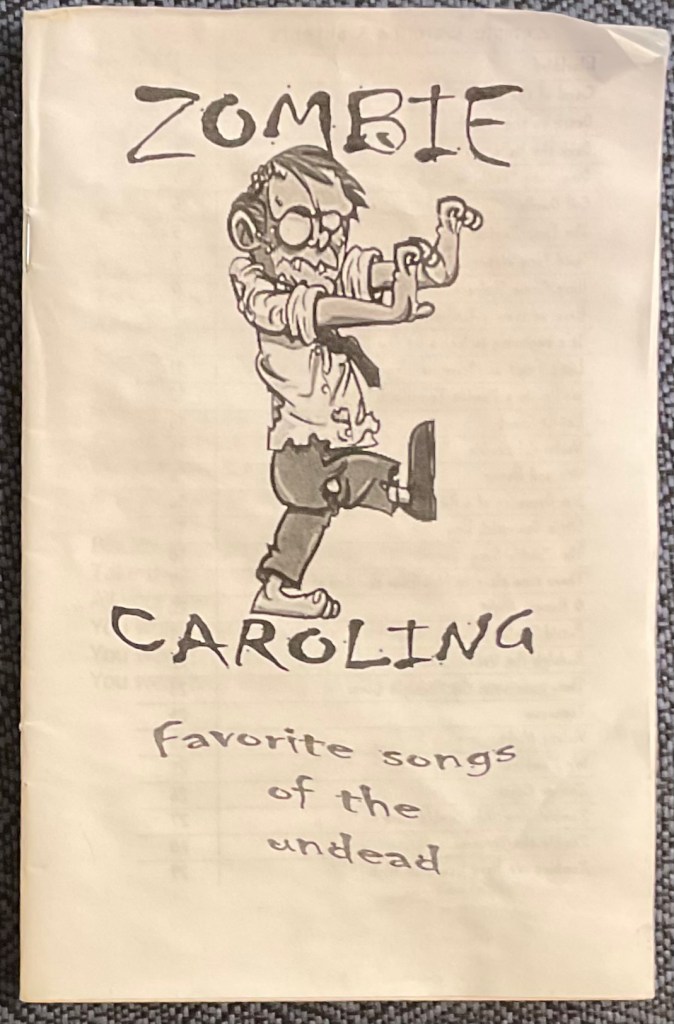 ZOMBIE
CAROLING
favorite songs
of the
undead